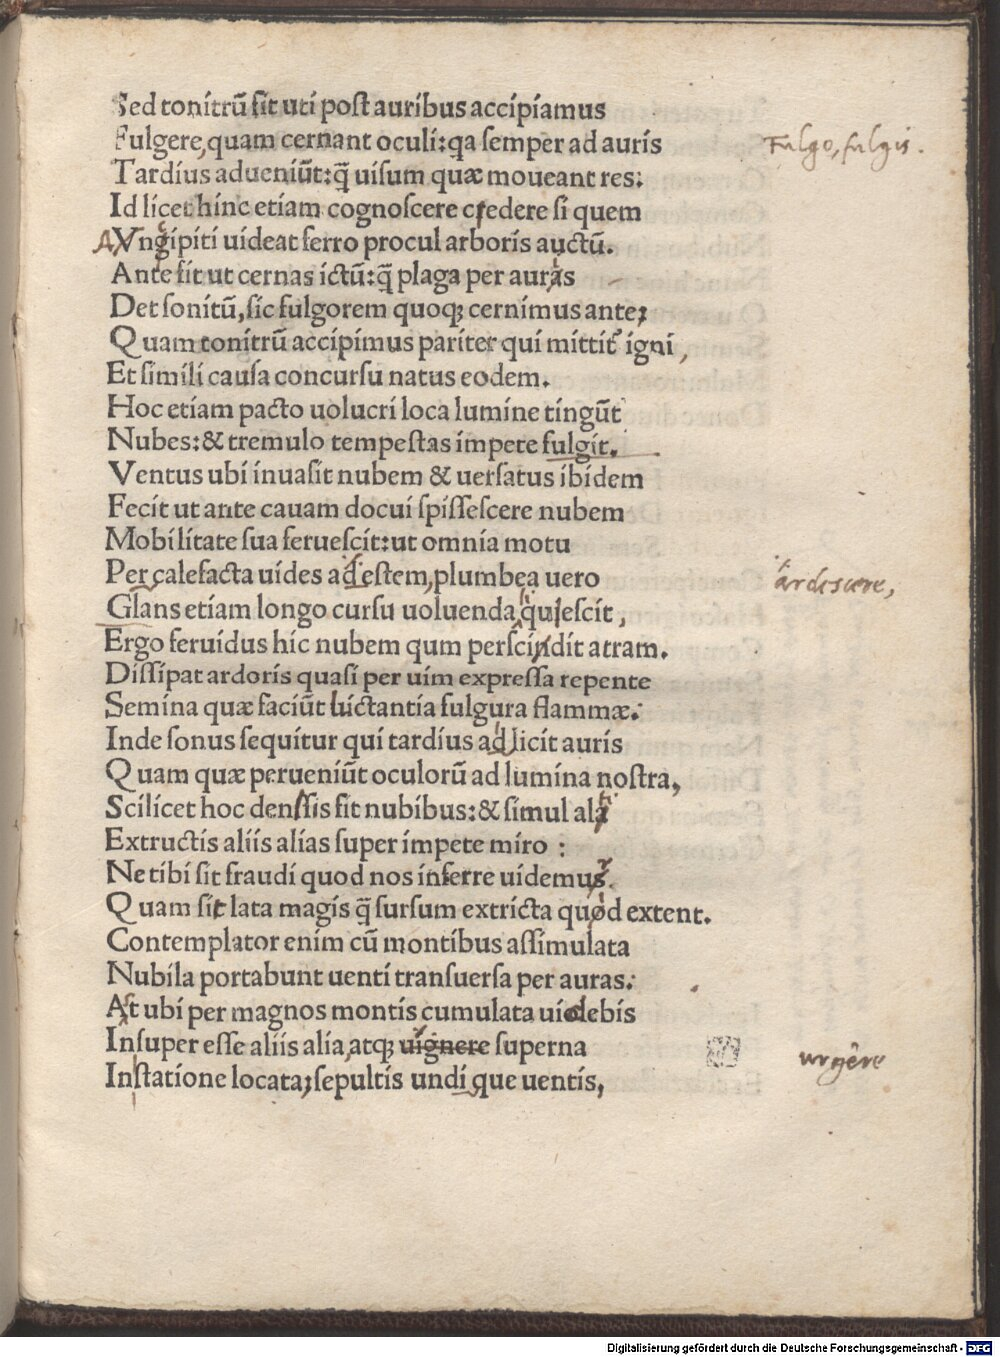 Sed tonitrū sit uti post auribus accipiamus
Fulgere, quam cernant oculi: qa semper ad auris
Fulgo, fulgis.
Tardius adueniūt: q̄ uisum quæ moueant res:
Id licet hinc etiam cognoscere credere si quem
Vngipiti uideat ferro procul arboris auctū.
Ante sit ut cernas ictū: q̄ plaga per auras
Det sonitū, sic fulgorem quoq; cernimus ante;
Quam tonitrū accipimus pariter qui mittit igni,
Et simili causa concursu natus eodem.
Hoc etiam pacto uolucri loca lumine tingūt
Nubes: & tremulo tempestas impete fulgit.
Ventus ubi inuasit nubem & uersatus ibidem
Fecit ut ante cauam docui spissescere nubem
Mobilitate sua feruescit: ut omnia motu
Percalefacta uides ad estem, plumbea uero
ardescere,
Glans etiam longo cursu uoluenda quiescit,
Ergo feruidus hic nubem qum perscindit atram.
Dissipat ardoris quasi per uim expressa repente
Semina quæ faciūt luctantia fulgura flammæ:
Inde sonus sequitur qui tardius adlicit auris
Quam quæ perueniūt oculorū ad lumina nostra,
Scilicet hoc denssis fit nubibus: & simul ala
Extructis aliis alias super impete miro:
Ne tibi sit fraudi quod nos inferre uidemus.
Quam sit lata magis q̄ sursum extricta quod extent.
Contemplator enim cū montibus assimulata
Nubila portabunt uenti transuersa per auras:
At ubi per magnos montis cumulata uidebis
Insuper esse aliis alia, atq; uignere superna
urgêre
Instatione locata; sepultis undi que uentis,
Digitalisierung gefördert durch die Deutsche Forschungsgemeinschaft - DFG